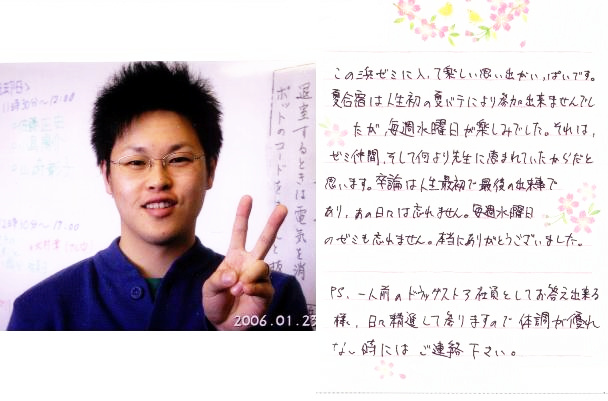 11時30分〜12:00
2006.01.23
退室するときは電気を消
ポットのコードを
この浜ゼミに入って楽しい思い出がいっぱいです。
夏合宿は人生初の夏バテにより参加出来ませんでし
たが、毎週水曜日が楽しみでした。それは、
ゼミ仲間、そして何より先生に恵まれていたからだと
思います。卒論は人生最初で最後の出来事で
あり、あの日々は忘れません。毎週水曜日
のゼミも忘れません。本当にありがとうございました。
PS、一人前のドラッグストア社員としてお答え出来る
様、日々精進して参りますので体調が優れ
ない時にはご連絡下さい。